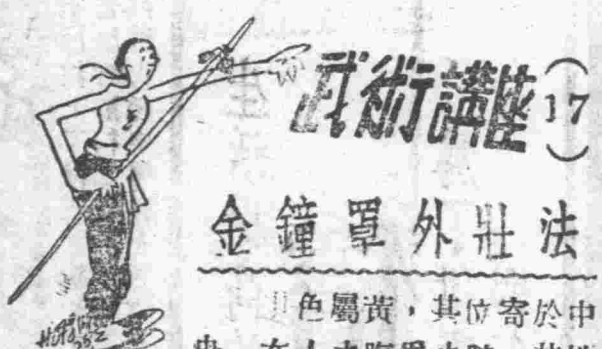 武術講座(17)
金鐘罩外壯法
色屬黃，其位寄於中